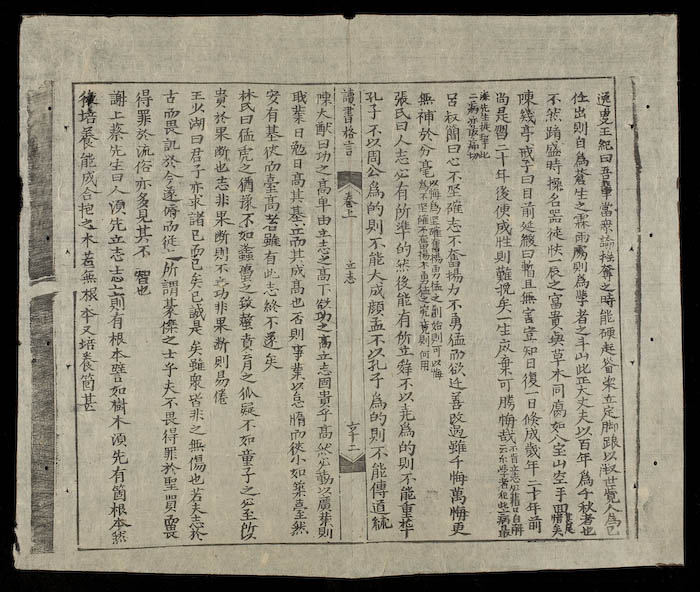 逸史王紀曰吾輩當衆論搖奪之時能硬起脊梁立定脚跟以淑世覺人為己
任出則自為蒼生之霖雨處則為學者之斗山此正大丈夫以百年為千秋者也
不然踏盛時操名器徒快一辰之富貴與草木同腐如入宝山空手
陳幾亭戒子曰目前延緩曰暫且無害豈知日復一日倏成歲年二十年前
尚是習二十年後便成性則難挽矣一生成棄可勝悔哉
呂叔簡曰心不堅確志不奮揚力不勇猛而欲迁善改過雖千悔萬悔更
無補於分毫
張氏曰人志必有所準的然後能有所立舜不以尭為的則不能重華
孔子不以周公為的則不能大成顔孟不以孔子為的則不能傳道統
讀書格言
卷上
立志
陳大猷曰功之高卑由立志之高下欲功之高立志固貴乎高然必勤以廣業則
職業日勉日高其基立而其成高也否則事業以怠惰而徒小如築臺然
安有基狹而臺高者雖有此志終不遂矣
林氏曰猛虎之猶豫不如蠭蠆之致螫賁育之狐疑不如童子之必至所以
貴於果断也志非果断則不立功非果断則易倦
王少湖曰君子亦求諸己而已矣己誠是矣雖衆皆非之無傷也若夫志於
古而畏訕於今遂脩而徒所謂綦傑之士乎夫不畏得罪於聖賢而畏
得罪於流俗亦多見其不智也
謝上蔡先生曰人湏先立志志立則有根本譬如樹木湏先有箇根本然
後培養能成合抱之木若無根本又培養箇甚